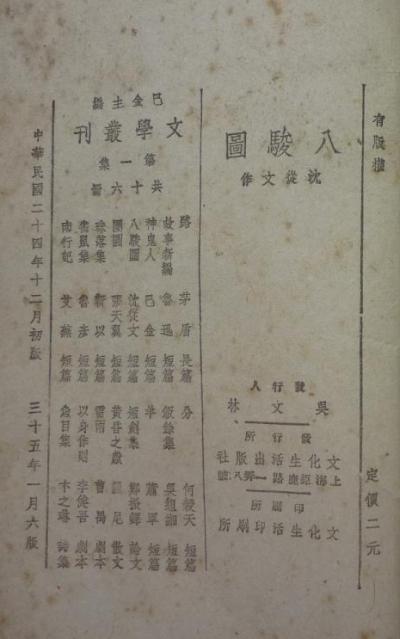 有版權
定價二元
八駿圖
沈從文作
發行人
吳文林
發行所
文化生活出版社
印刷所
文化生活印刷所
巴金主編
文學叢刊
第一集
共十六冊
路 茅盾 長篇
故事新編 魯迅 短篇
神鬼人 巴金 短篇
八駿圖 沈從文 短篇
團圓 張天翼 短篇
珠落集 靳以 短篇
雀鼠集 魯彥 短篇
南行記 艾蕪 短篇
分 何穀天 短篇
飯餘集 吳組緗 短篇
羊 蕭軍 短篇
短劍集 鄭振鐸 論文
黃昏之獻 麗尼 散文
雷雨 曹禺 劇本
以身作則 李健吾 劇本
魚目集 卞之琳 詩集
中華民國二十四年十二月初版
三十五年一月六版